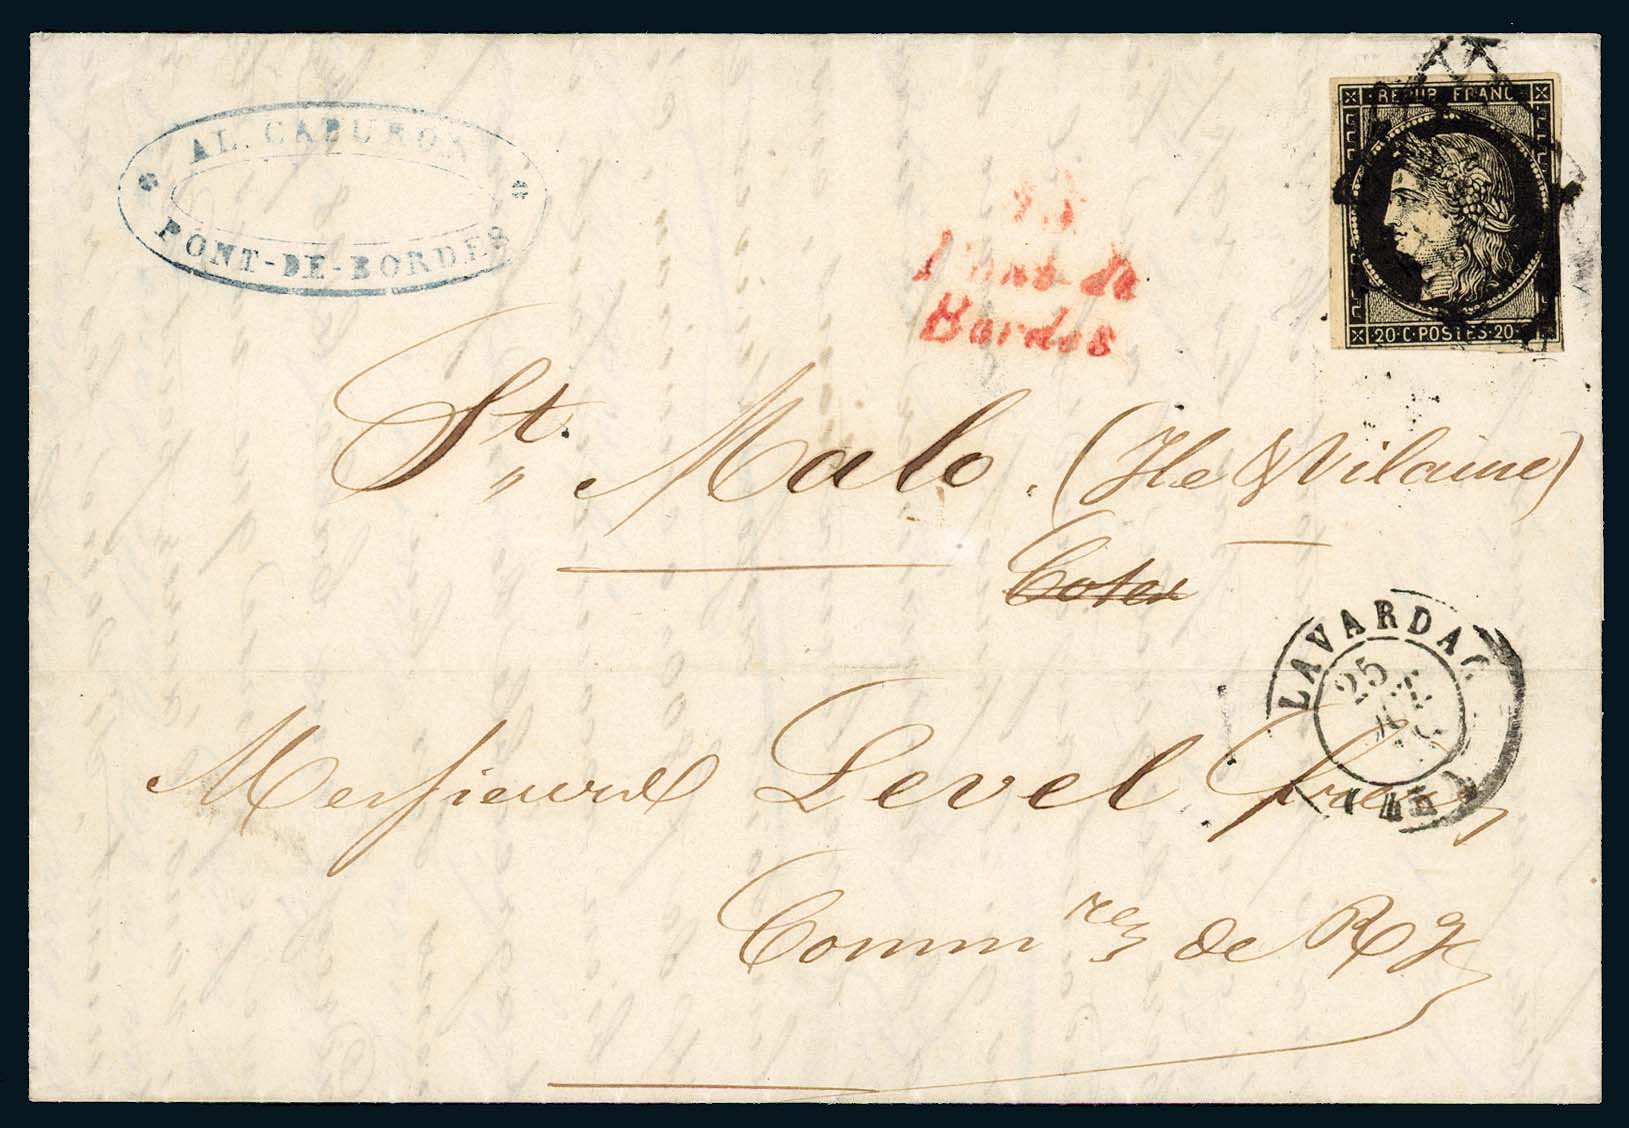 AL. CABURON
PONT-DE-BORDES
REPUB. FRANC.
20·C·POSTES·20·C
Bordes
St. Malo. (Ile & Vilaine)
LAVARDAC
25
Messieurs Level frères
Comm res de Rg